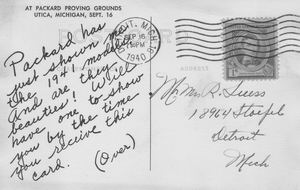 AT PACKARD PROVING GROUNDS
UTICA, MICHIGAN, SEPT. 16
Packard has
just shown me
the 1941 models
And are they
beauties! Will
have one to show
you by the time
you receive this
card. (Over)
DETROIT, MICH.
SEP 16
PM
1940
ADDRESS
Mr Mrs R. Suess
18964 Stoepel
Detroit
Mich